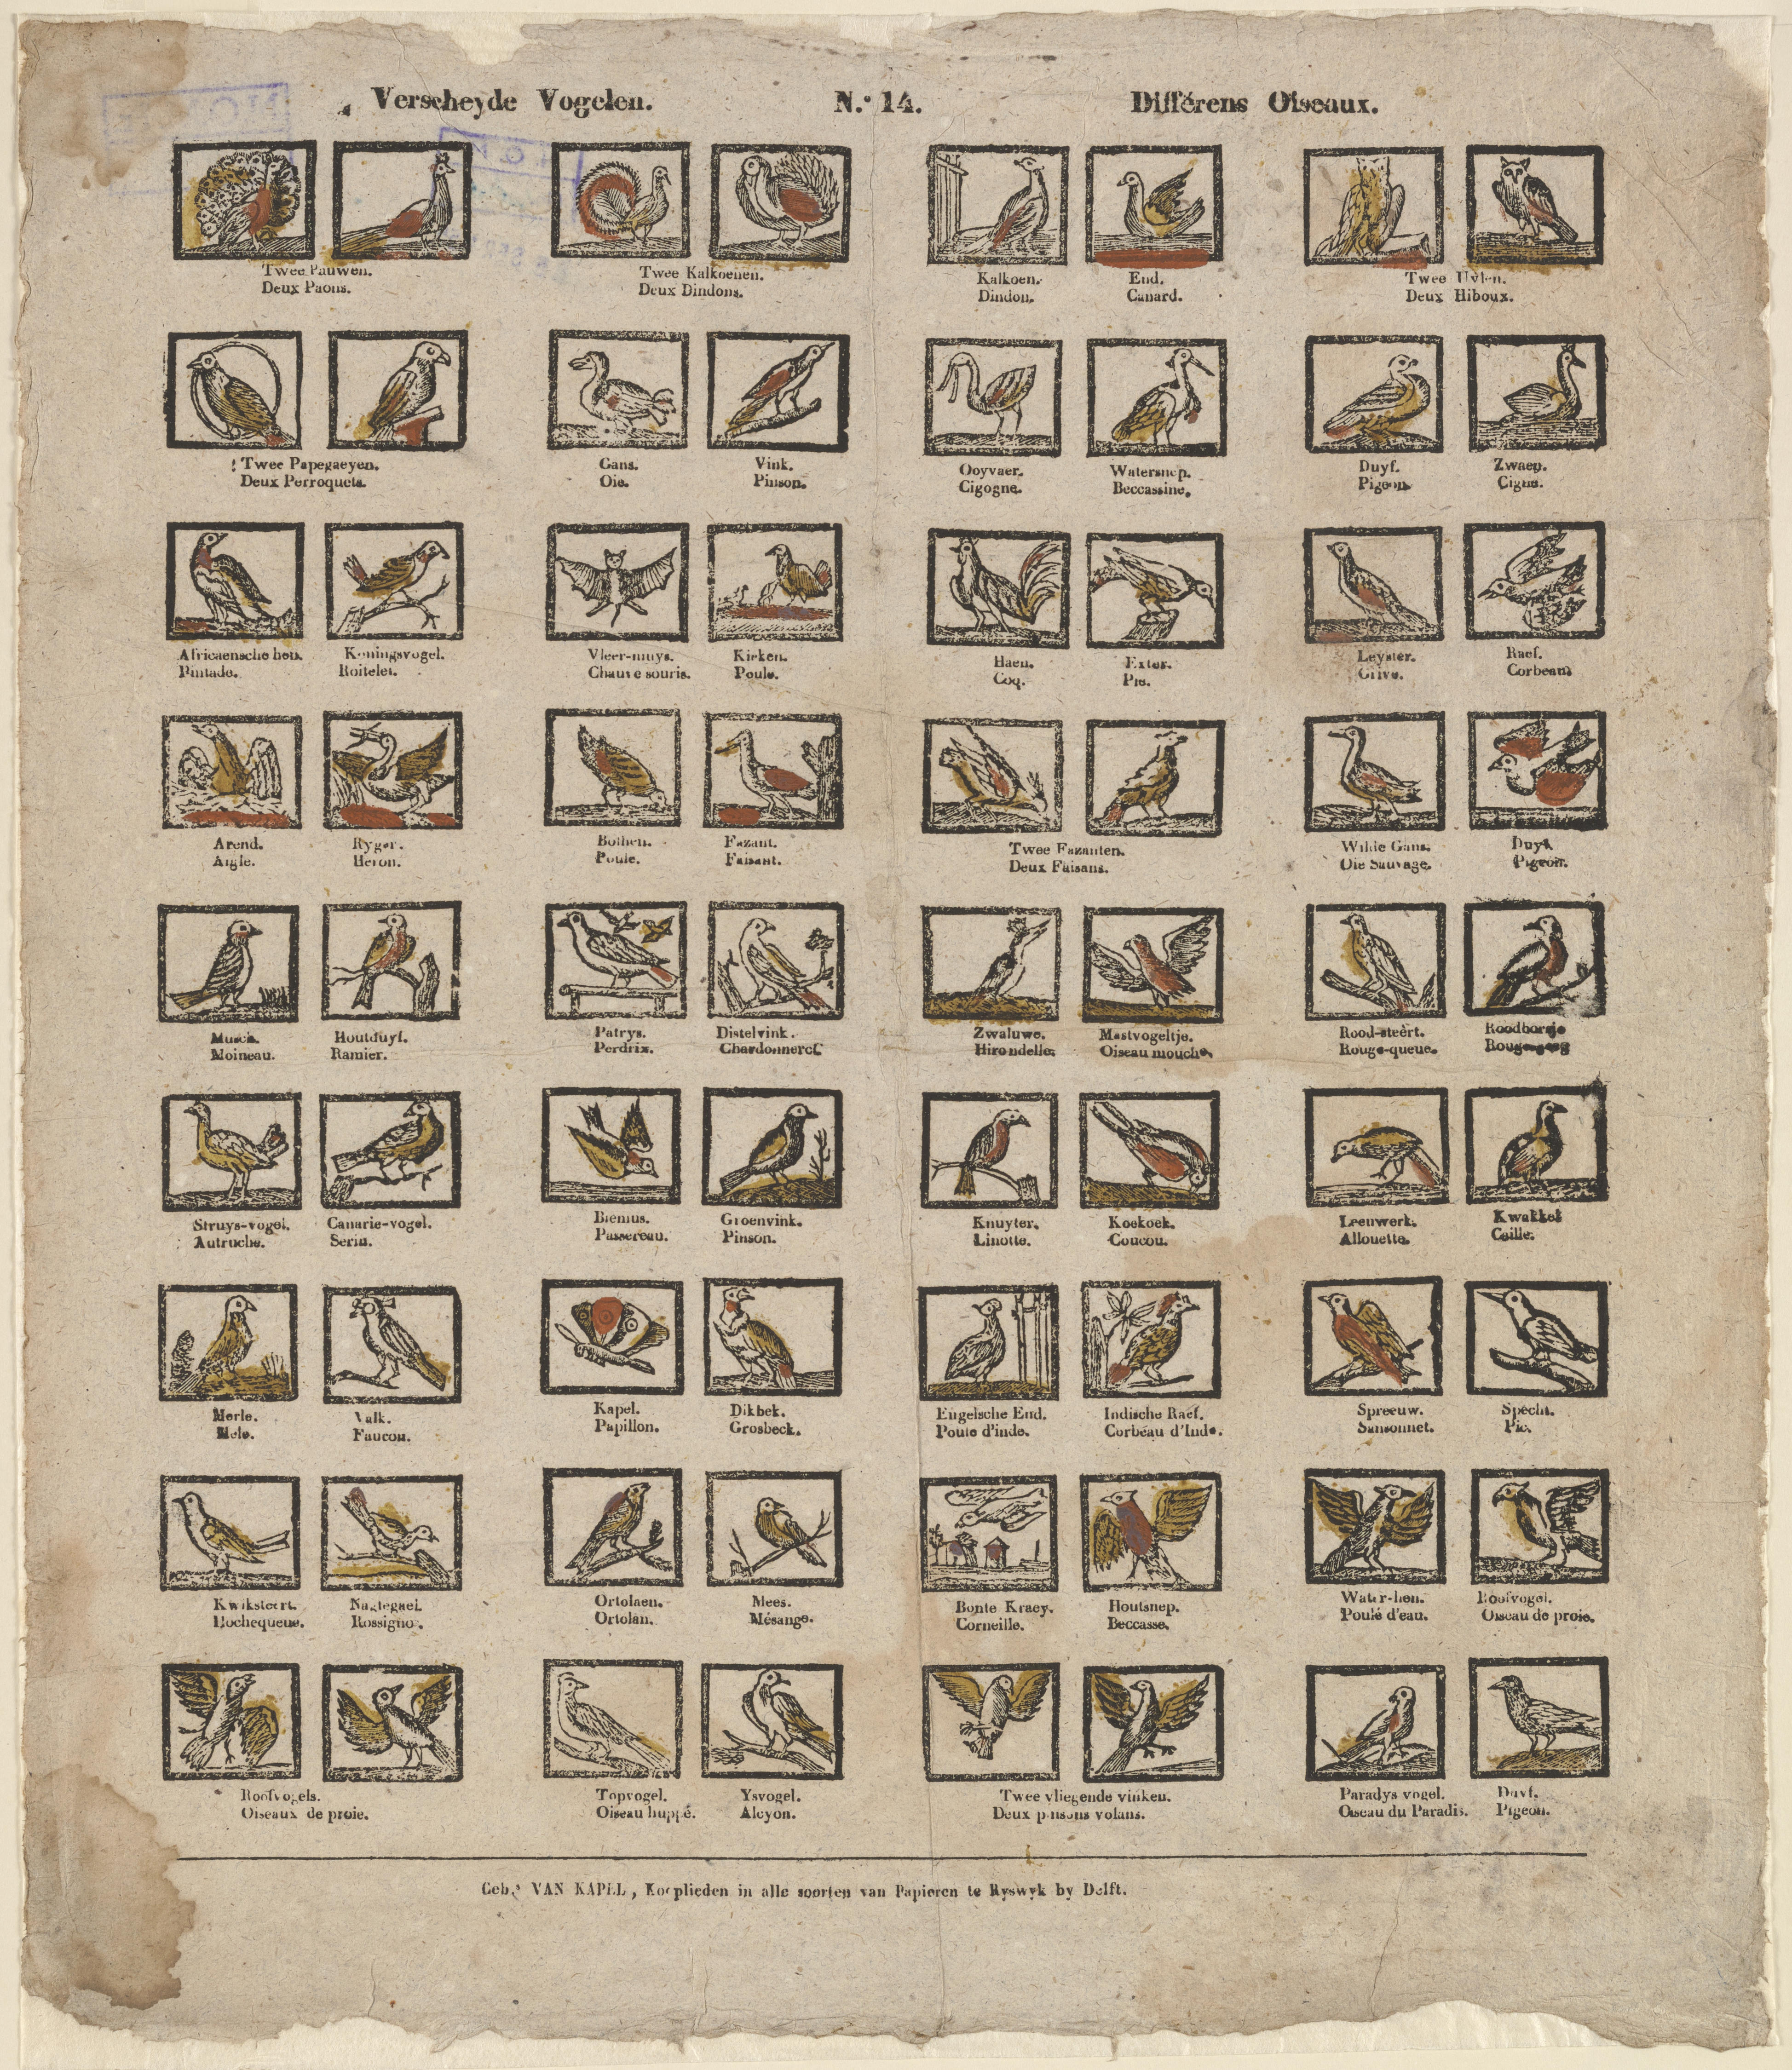 Verscheyde Vogelen. N.º 14. Différens Oiseaux.
Twee Pauwen.
Deux Paons.
Twee Kalkoenen.
Deux Dindons.
Kalkoen.
Dindon.
End.
Canard.
Twee Uylen.
Deux Hiboux.
Twee Papegaeyen.
Deux Perroquets.
Gans.
Oie.
Vink.
Pinson.
Ooyvaer.
Cigogne.
Watersnep.
Beccassine.
Duyf.
Pigeon.
Zwaen.
Cigne.
Africaensche hen.
Pintade.
Koningsvogel.
Roitelet.
Vleer-muys.
Chauve souris.
Kieken.
Poule.
Haen.
Coq.
Exter.
Pie.
Leyster.
Grive.
Raef.
Corbeau.
Arend.
Aigle.
Ryger.
Heron.
Poule.
Fazant.
Faisant.
Twee Fazanten.
Deux Faisans.
Wilde Gans.
Oie Sauvage.
Duyf.
Pigeon.
Musch.
Moineau.
Houtduyf.
Ramier.
Patrys.
Perdrix.
Distelvink.
Chardonneret.
Zwaluwe.
Hirondelle.
Mastvogeltje.
Oiseau mouche.
Rood-steèrt.
Rouge-queue.
Roodborsje
Struys-vogel.
Autruche.
Canarie-vogel.
Serin.
Passereau.
Groenvink.
Pinson.
Knuyter.
Linotte.
Koekoek.
Coucou.
Leeuwerk.
Allouette.
Kwakkel
Caille.
Merle.
Mele.
Valk.
Faucon.
Kapel.
Papillon.
Dikbek.
Grosbeck.
Engelsche End.
Poule d'inde.
Indische Raef.
Corbeau d'Inde.
Spreeuw.
Sansonnet.
Specht.
Pic.
Kwiksteert.
Hochequeue.
Nagtegael.
Rossignol.
Ortolaen.
Ortolan.
Mees.
Mésange.
Bonte Kraey.
Corneille.
Houtsnep.
Beccasse.
Water-hen.
Poule d'eau.
Roofvogel.
Oiseau de proie.
Roofvogels.
Oiseaux de proie.
Topvogel.
Oiseau huppé.
Ysvogel.
Alcyon.
Twee vliegende vinken.
Deux pinsons volans.
Paradys vogel.
Oiseau du Paradis.
Duyf.
Pigeon.
Gebs. VAN KAPEL, Kooplieden in alle soorten van Papieren te Ryswyk by Delft.